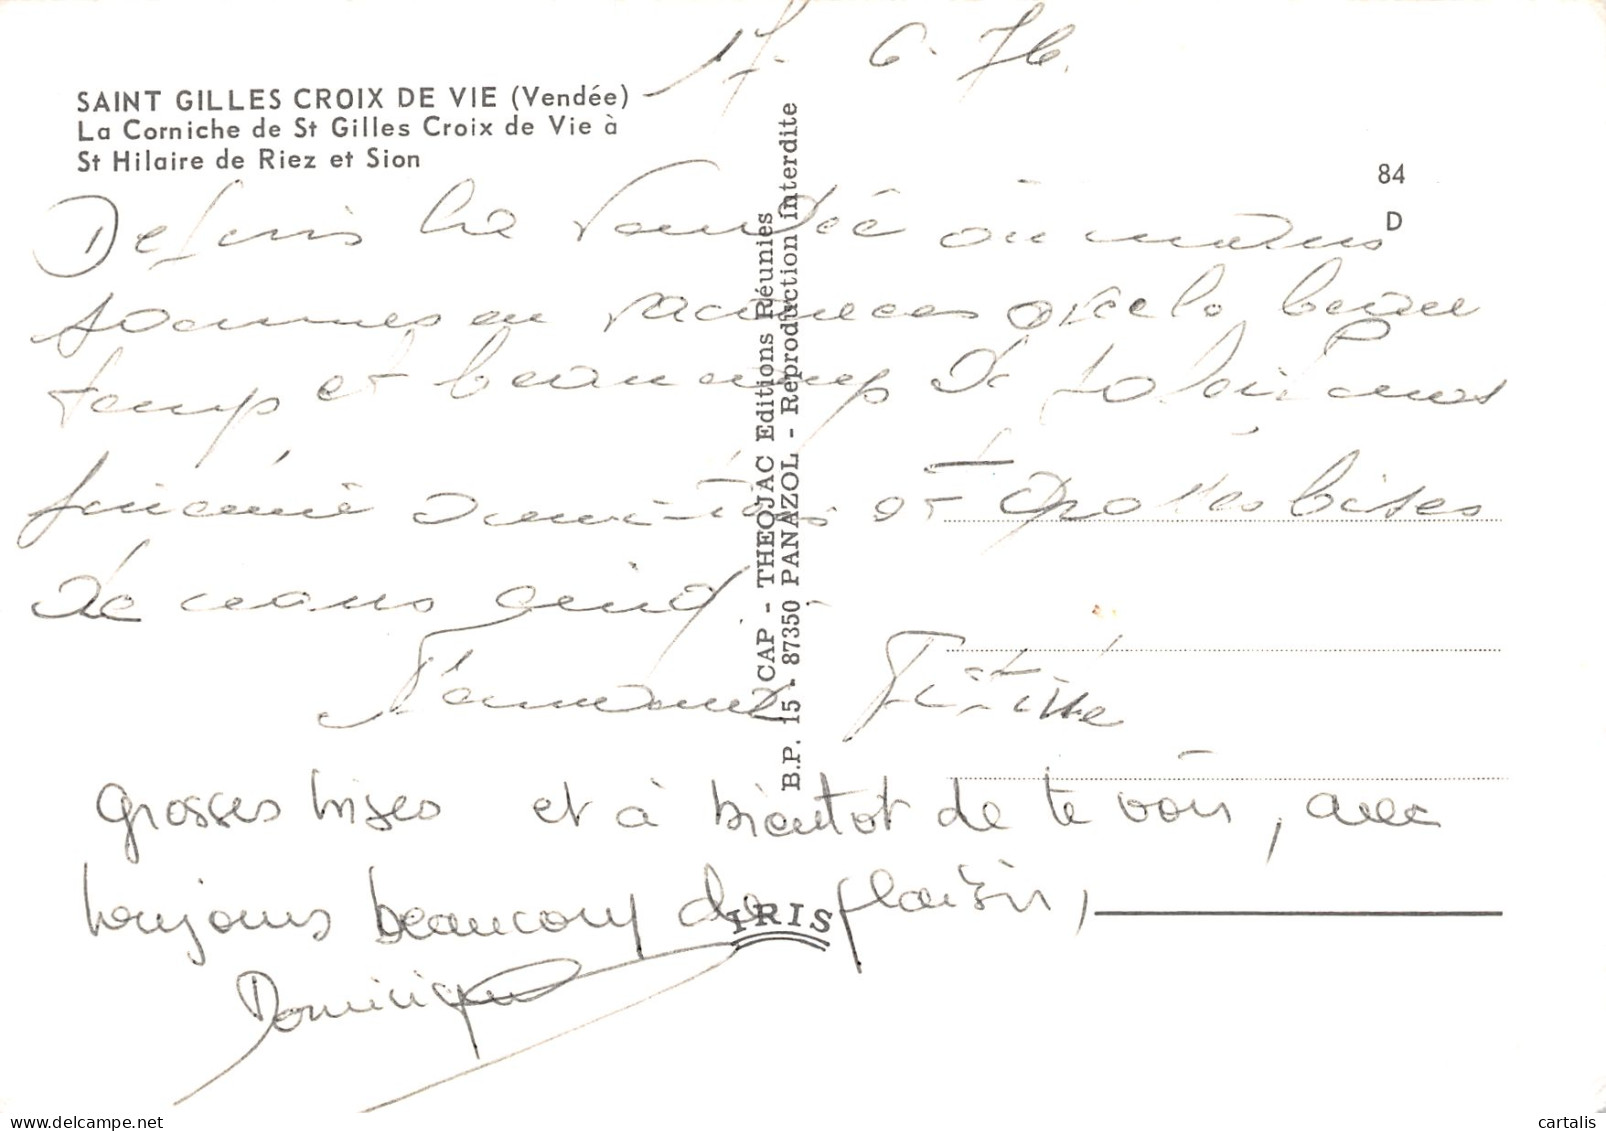 17. 6. 76.
SAINT GILLES CROIX DE VIE (Vendée)
La Corniche de St Gilles Croix de Vie à
St Hilaire de Riez et Sion
84
D
Depuis la Vendée où nous
sommes en vacances avec le beau
temps et beaucoup de soleil nos
sincère amitiés et grosses bises
de nous cinq
grosses bises et à bientôt de te voir, avec
toujours beaucoup de plaisir,
Dominique
CAP - THEOJAC Editions Réunies
B.P. 15 - 87350 PANAZOL - Reproduction interdite
IRIS
cartalis
delcampe.net